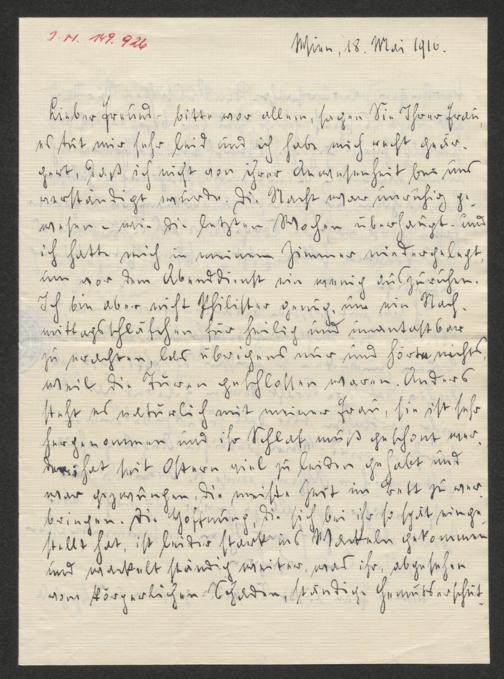 I. N. 149.926
Wien, 18. Mai 1916.
Lieber Freund - bitte vor allem, sagen Sie Ihrer Frau,
es tut mir sehr leid und ich habe mich recht geär-
gert, daß ich nicht von ihrer Anwesenheit bei uns
verständigt wurde. Die Nacht war unruhig ge-
wesen - wie die letzten Wochen überhaupt - und
ich hatte mich in meinem Zimmer niedergelegt,
um vor dem Abenddienst ein wenig auszuruhen.
Ich bin aber nicht Philister genug, um ein Nach-
mittagsschläfchen für heilig und unantastbar
zu erachten, las übrigens nur und hörte nichts,
weil die Türen geschlossen waren. Anders
steht es natürlich mit meiner Frau, sie ist sehr
hergenommen und ihr Schlaf muß geschont wer-
den; hat seit Ostern viel zu leiden gehabt und
war gezwungen, die meiste Zeit im Bett zu ver-
bringen. Die Hoffnung, die sich bei ihr so spät einge-
stellt hat, ist leider stark ins Wackeln gekommen
und wackelt ständig weiter, was ihr, abgesehen
vom körperlichen Schaden, ständige Gemütserschüt-